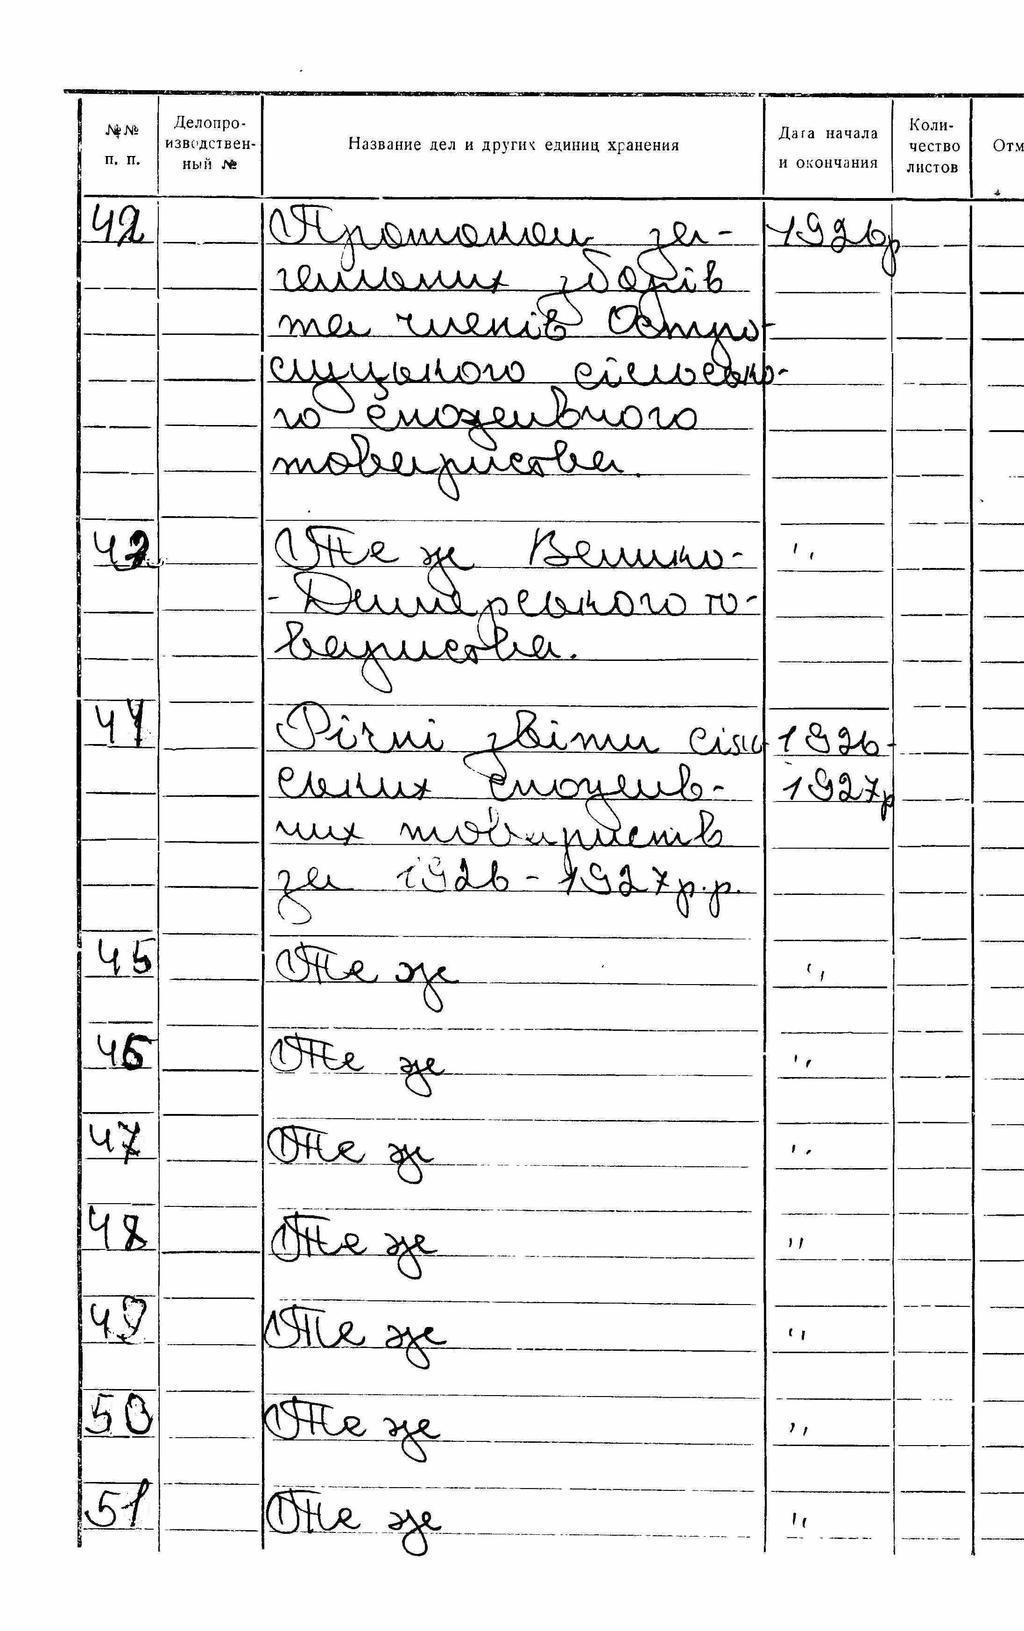 №№ п. п. Делопро-изводствен-ный № Название дел и других единиц хранения Дата начала и окончания Коли-чество листов Отм
42 Протокол за- 1926р
гальних зборів
та членів Остро-
луцького сільсько-
го споживчого
товариства.
43 Те ж Велико- "
-Димерського то-
вариства.
44 Річні звіти сіль- 1926-
ських спожив- 1927р
чих товариств
за 1926-1927р.р.
45 Те ж "
46 Те ж "
47 Те ж "
48 Те ж "
49 Те ж "
50 Те ж "
51 Те ж "